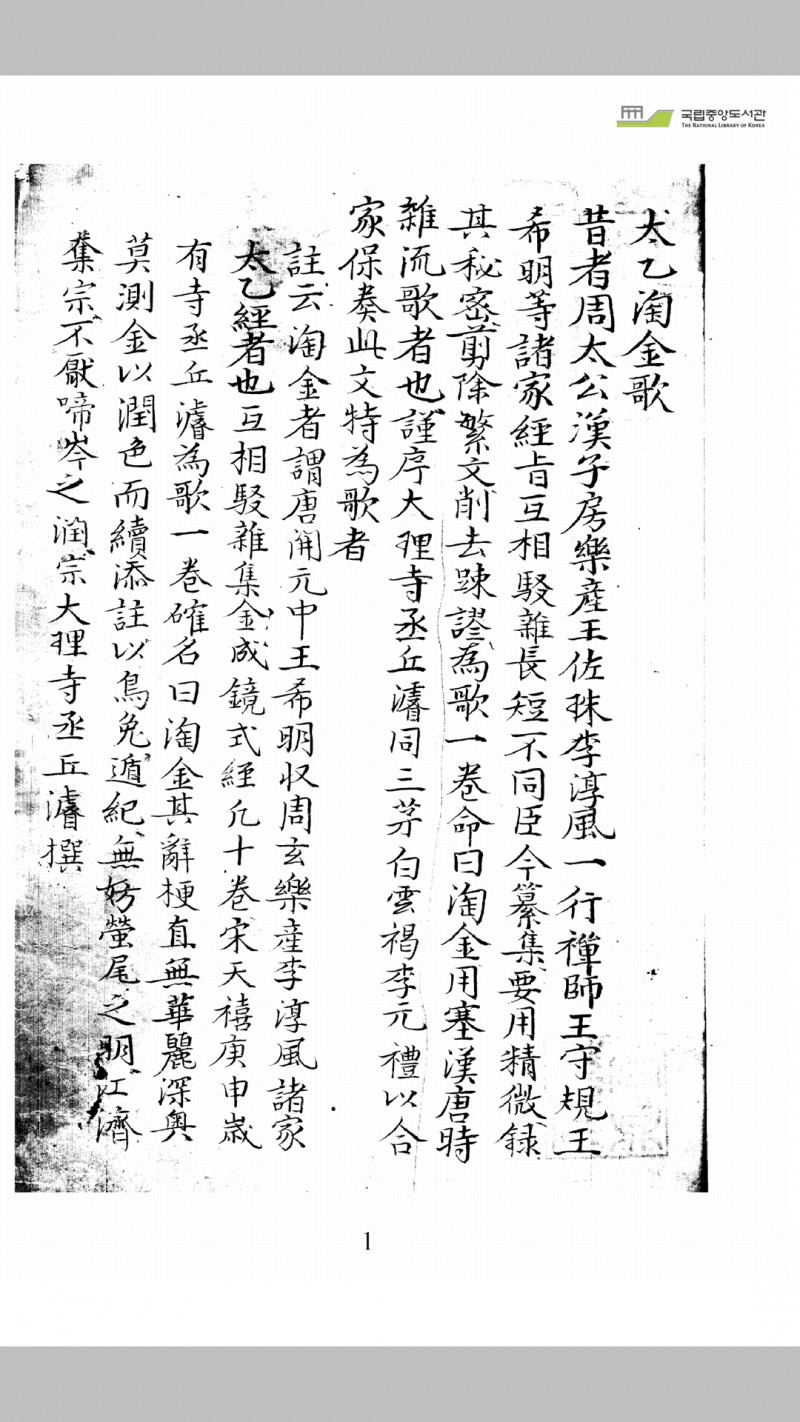 국립중앙도서관
THE NATIONAL LIBRARY OF KOREA
太乙淘金歌
昔者周太公漢子房樂産王佐珠李淳風一行禪師王守規王
希明等諸家經旨互相駁雜長短不同臣今纂集要用精微録
其秘密剪除繁文削去踈謬為歌一卷命曰淘金用塞漢唐時
雜流歌者也謹序大理寺丞丘濬同三茅白雲褐李元禮以合
家保奏此文特為歌者
註云淘金者謂唐開元中王希明収周玄樂産李淳風諸家
太乙經者也互相駁雜集金成鏡式經凢十卷宋天禧庚申嵗
有寺丞丘濬為歌一卷確名曰淘金其辭梗直無華麗深奥
莫測金以潤色而續添註以鳥兔遁紀無妨螢尾之明江濟
宗不厭啼岑之潤宗大理寺丞丘濬撰
1